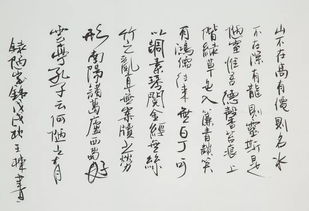 山不在高有僊則名水
不在深有龍則靈斯是
陋室惟吾德馨苔痕上
階綠草色入簾青談笑
有鴻儒往來無白丁可
以調素琴閱金經無絲
竹之亂耳無案牘之勞
形南陽諸葛廬西蜀子
雲亭孔子云何陋之有
錄陋室銘戊戌秋王書